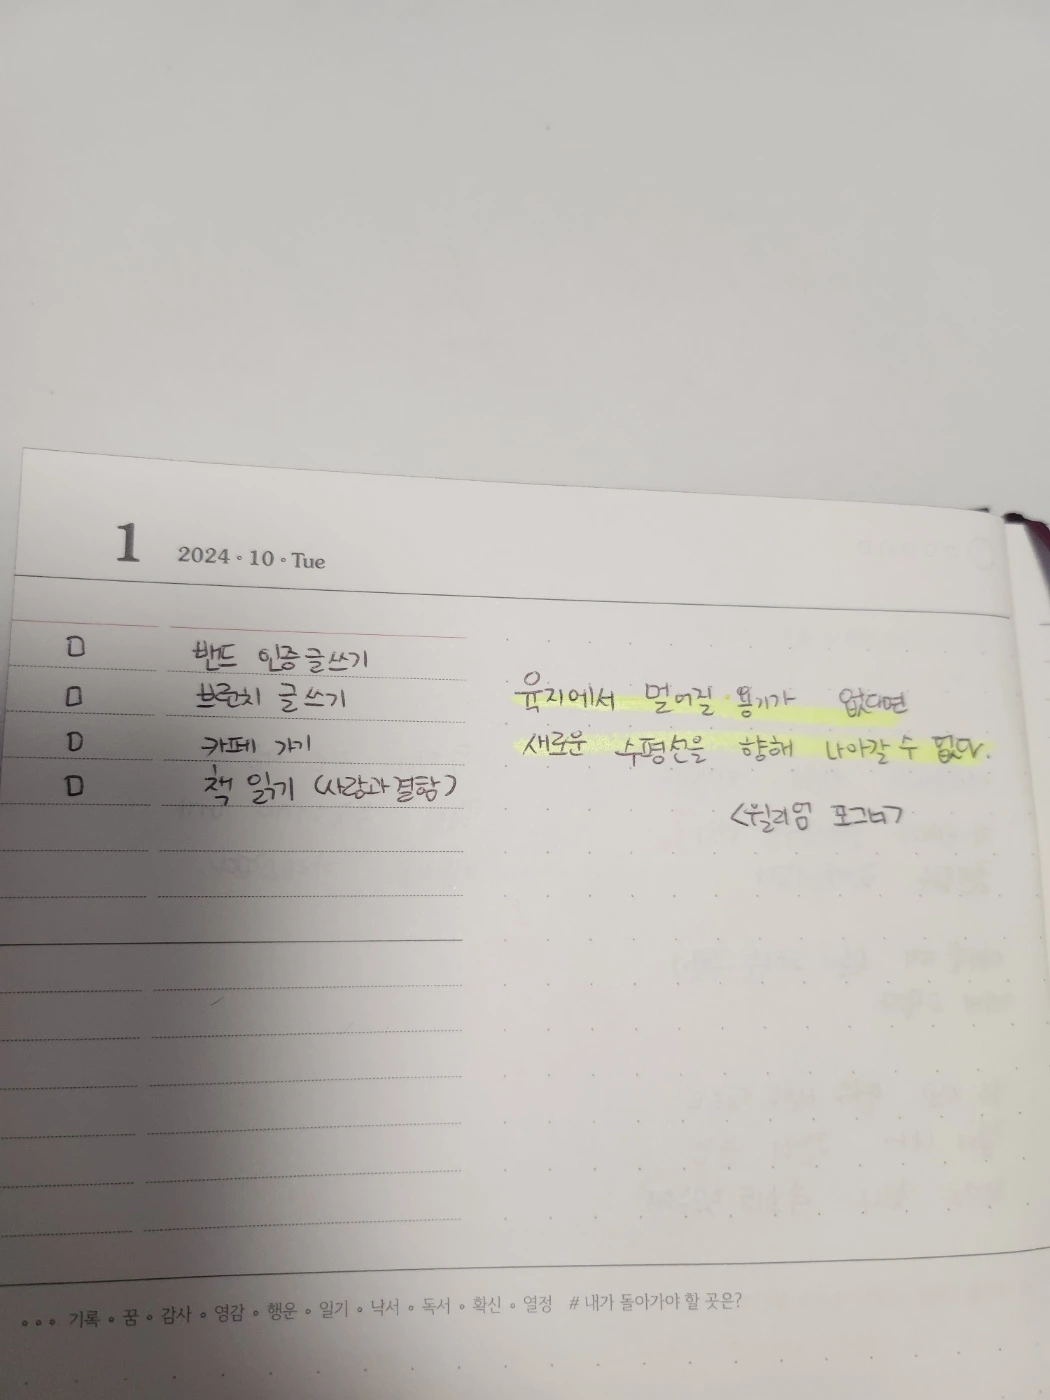 1 2024 • 10 • Tue
밴드 인증글쓰기
브런치 글쓰기
카페 가기
책 읽기 (사랑과 결함)
육지에서 멀어질 용기가 없다면
새로운 수평선을 향해 나아갈 수 없다.
<윌리엄 포그너>
기록 • 꿈 • 감사 • 영감 • 행운 • 일기 • 낙서 • 독서 • 확신 • 열정 # 내가 돌아가야 할 곳은?